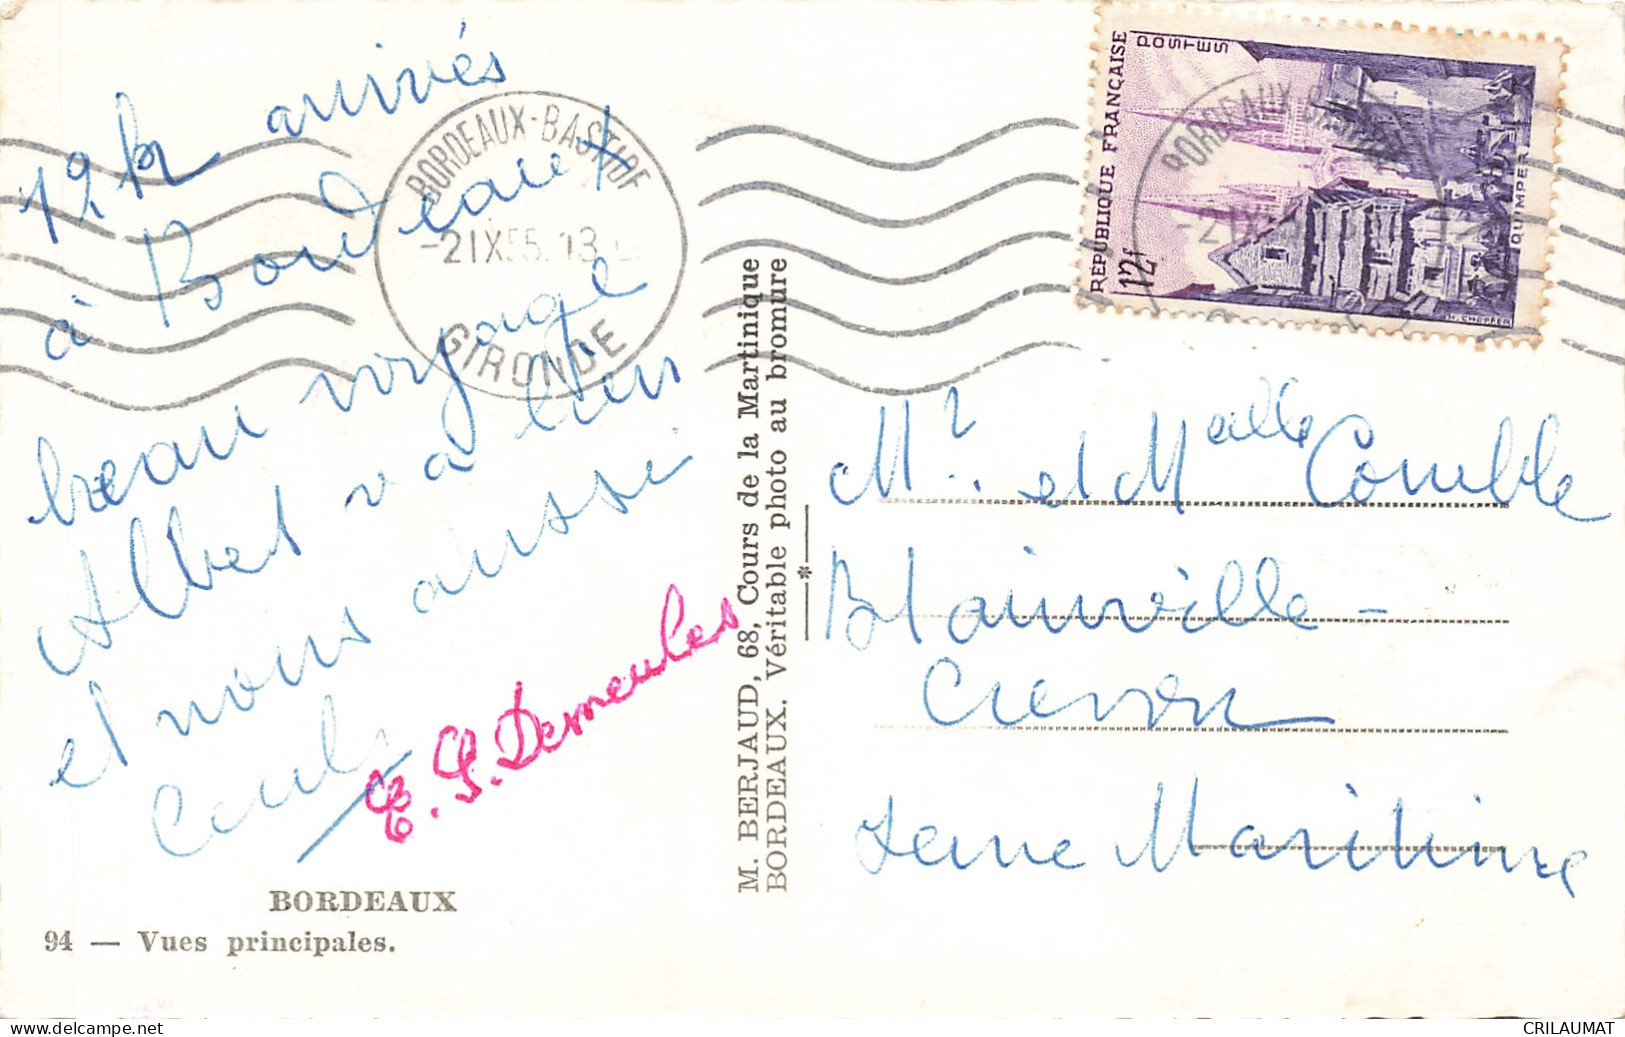 12 h arrivés
à Bordeaux
beau voyage
Albert va bien
et nous aussi
E. G. Demeules
BORDEAUX
94 — Vues principales.
BORDEAUX-BASTIDE
-2 IX 55. 13
GIRONDE
M. BERJAUD, 68, Cours de la Martinique
BORDEAUX. Véritable photo au bromure
RÉPUBLIQUE FRANÇAISE
POSTES
12f
QUIMPER
BORDEAUX
-2 IX
Mr. et Melle Comble
Blainville-
Crevon
Seine Maritime
CRILAUMAT